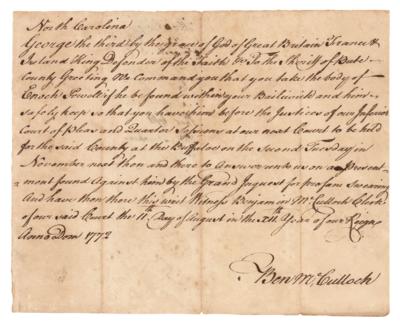 North Carolina
George the third by the grace of God of Great Britain France &
Ireland King Defender of the Faith &c To the Sheriff of Bute
County Greeting We command you that you take the body of
Enoch Powell if he be found within your Bailiwick and him
safely keep so that you have him before the Justices of our Inferior
Court of Pleas and Quarter Sessions at our next Court to be held
for the said County at the on the Second Tuesday in
November next then and there to Answer unto us on a present-
ment found Against him by the Grand Inquest for profane Swearing
And have then there this writ Witness Benjamin McCulloch Clerk
of our said Court the 11th Day of August in the XIIth Year of our Reign
Anno Dom 1772
Ben McCulloch